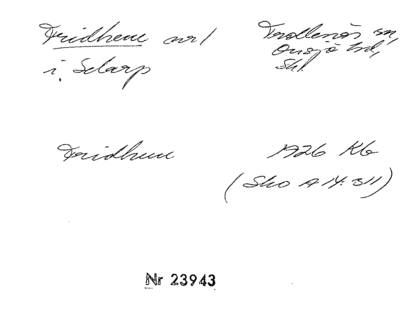 Fridhem nr 1
Trollenäs sn,
i. Skarp
Onsjö hd,
Sk.
Fridhem
1926 Kb
(Sko A 14:311)
Nr 23943